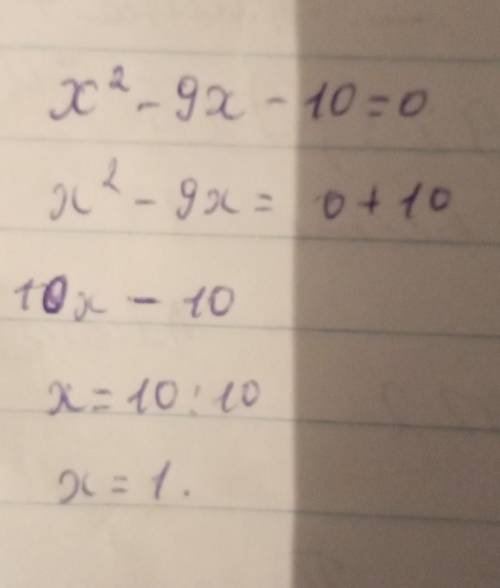 x² - 9x - 10 = 0
x² - 9x = 0 + 10
10x - 10
x = 10 : 10
x = 1.